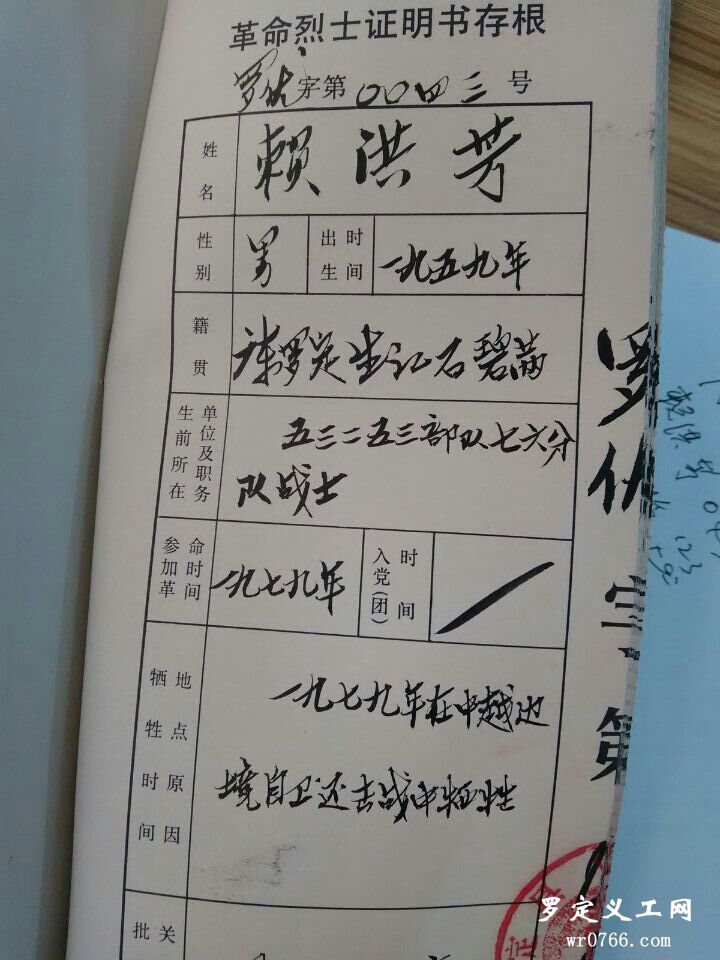 革命烈士证明书存根
罗优字第〇〇四三号
姓名 赖洪芳
性别 男 出生时间 一九五九年
籍贯 罗定 石碧
生前所在单位及职务 五三二五三部队七六分
队战士
参加革命时间 一九七九年 入党(团)时间
牺牲时间地点原因 一九七九年在中越边
境自卫还击战中牺牲
批 关
罗优字第
罗定义工网
wr0766.com